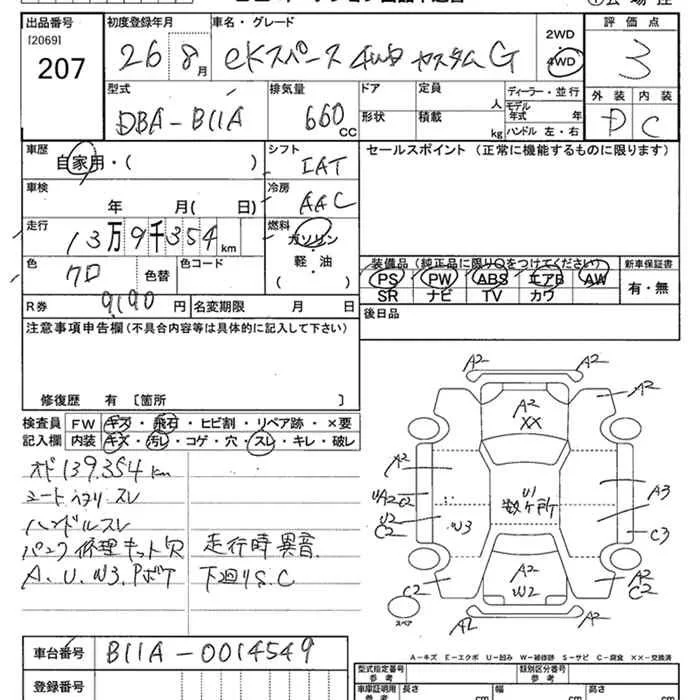 出品番号
[2069]
207
初度登録年月
26 8月
車名・グレード
eKスペース 4WD カスタム G
2WD
4WD
評価点
3
外装 内装
D C
型式
DBA-B11A
排気量
660 CC
ドア
形状
定員
人
積載
kg
ディーラー・並行
モデル
年式 年
ハンドル 左・右
車歴
自家用・( )
シフト
IAT
セールスポイント (正常に機能するものに限ります)
車検
年 月( 日)
冷房
AAC
走行
13万9千354km
燃料
ガソリン
軽・油
( )
色
クロ
色替
色コード
装備品 (純正品に限り○をつけてください)
PS PW ABS エアB AW
SR ナビ TV カワ
新車保証書
有・無
R券
9190円
名変期限 月 日
後日品
注意事項申告欄(不具合内容等は具体的に記入して下さい)
修復歴 有 [箇所 ]
検査員
記入欄
FW キズ・飛石・ヒビ割・リペア跡・×要
内装 キズ・汚レ・コゲ・穴・スレ・キレ・破レ
オド139.354km
シートヘタリ・スレ
ハンドルスレ
パンク修理キット欠 走行時異音
A、U、W3、Pボケ 下廻りS、C
A2 A2
A2
A2
XX
A2
UA2 C2
U2
C2
W3
U1
数ヶ所
A3
C3
C2
A2
W2
A2
C2
A2
スペア
A-キズ E-エクボ U-凹み W-補修跡 S-サビ C-腐食 ××-交換済
車台番号
B11A-0014549
登録番号
型式指定番号
参考
類別区分番号
参考
車庫証明用
参考
長さ cm
幅 cm
高さ cm